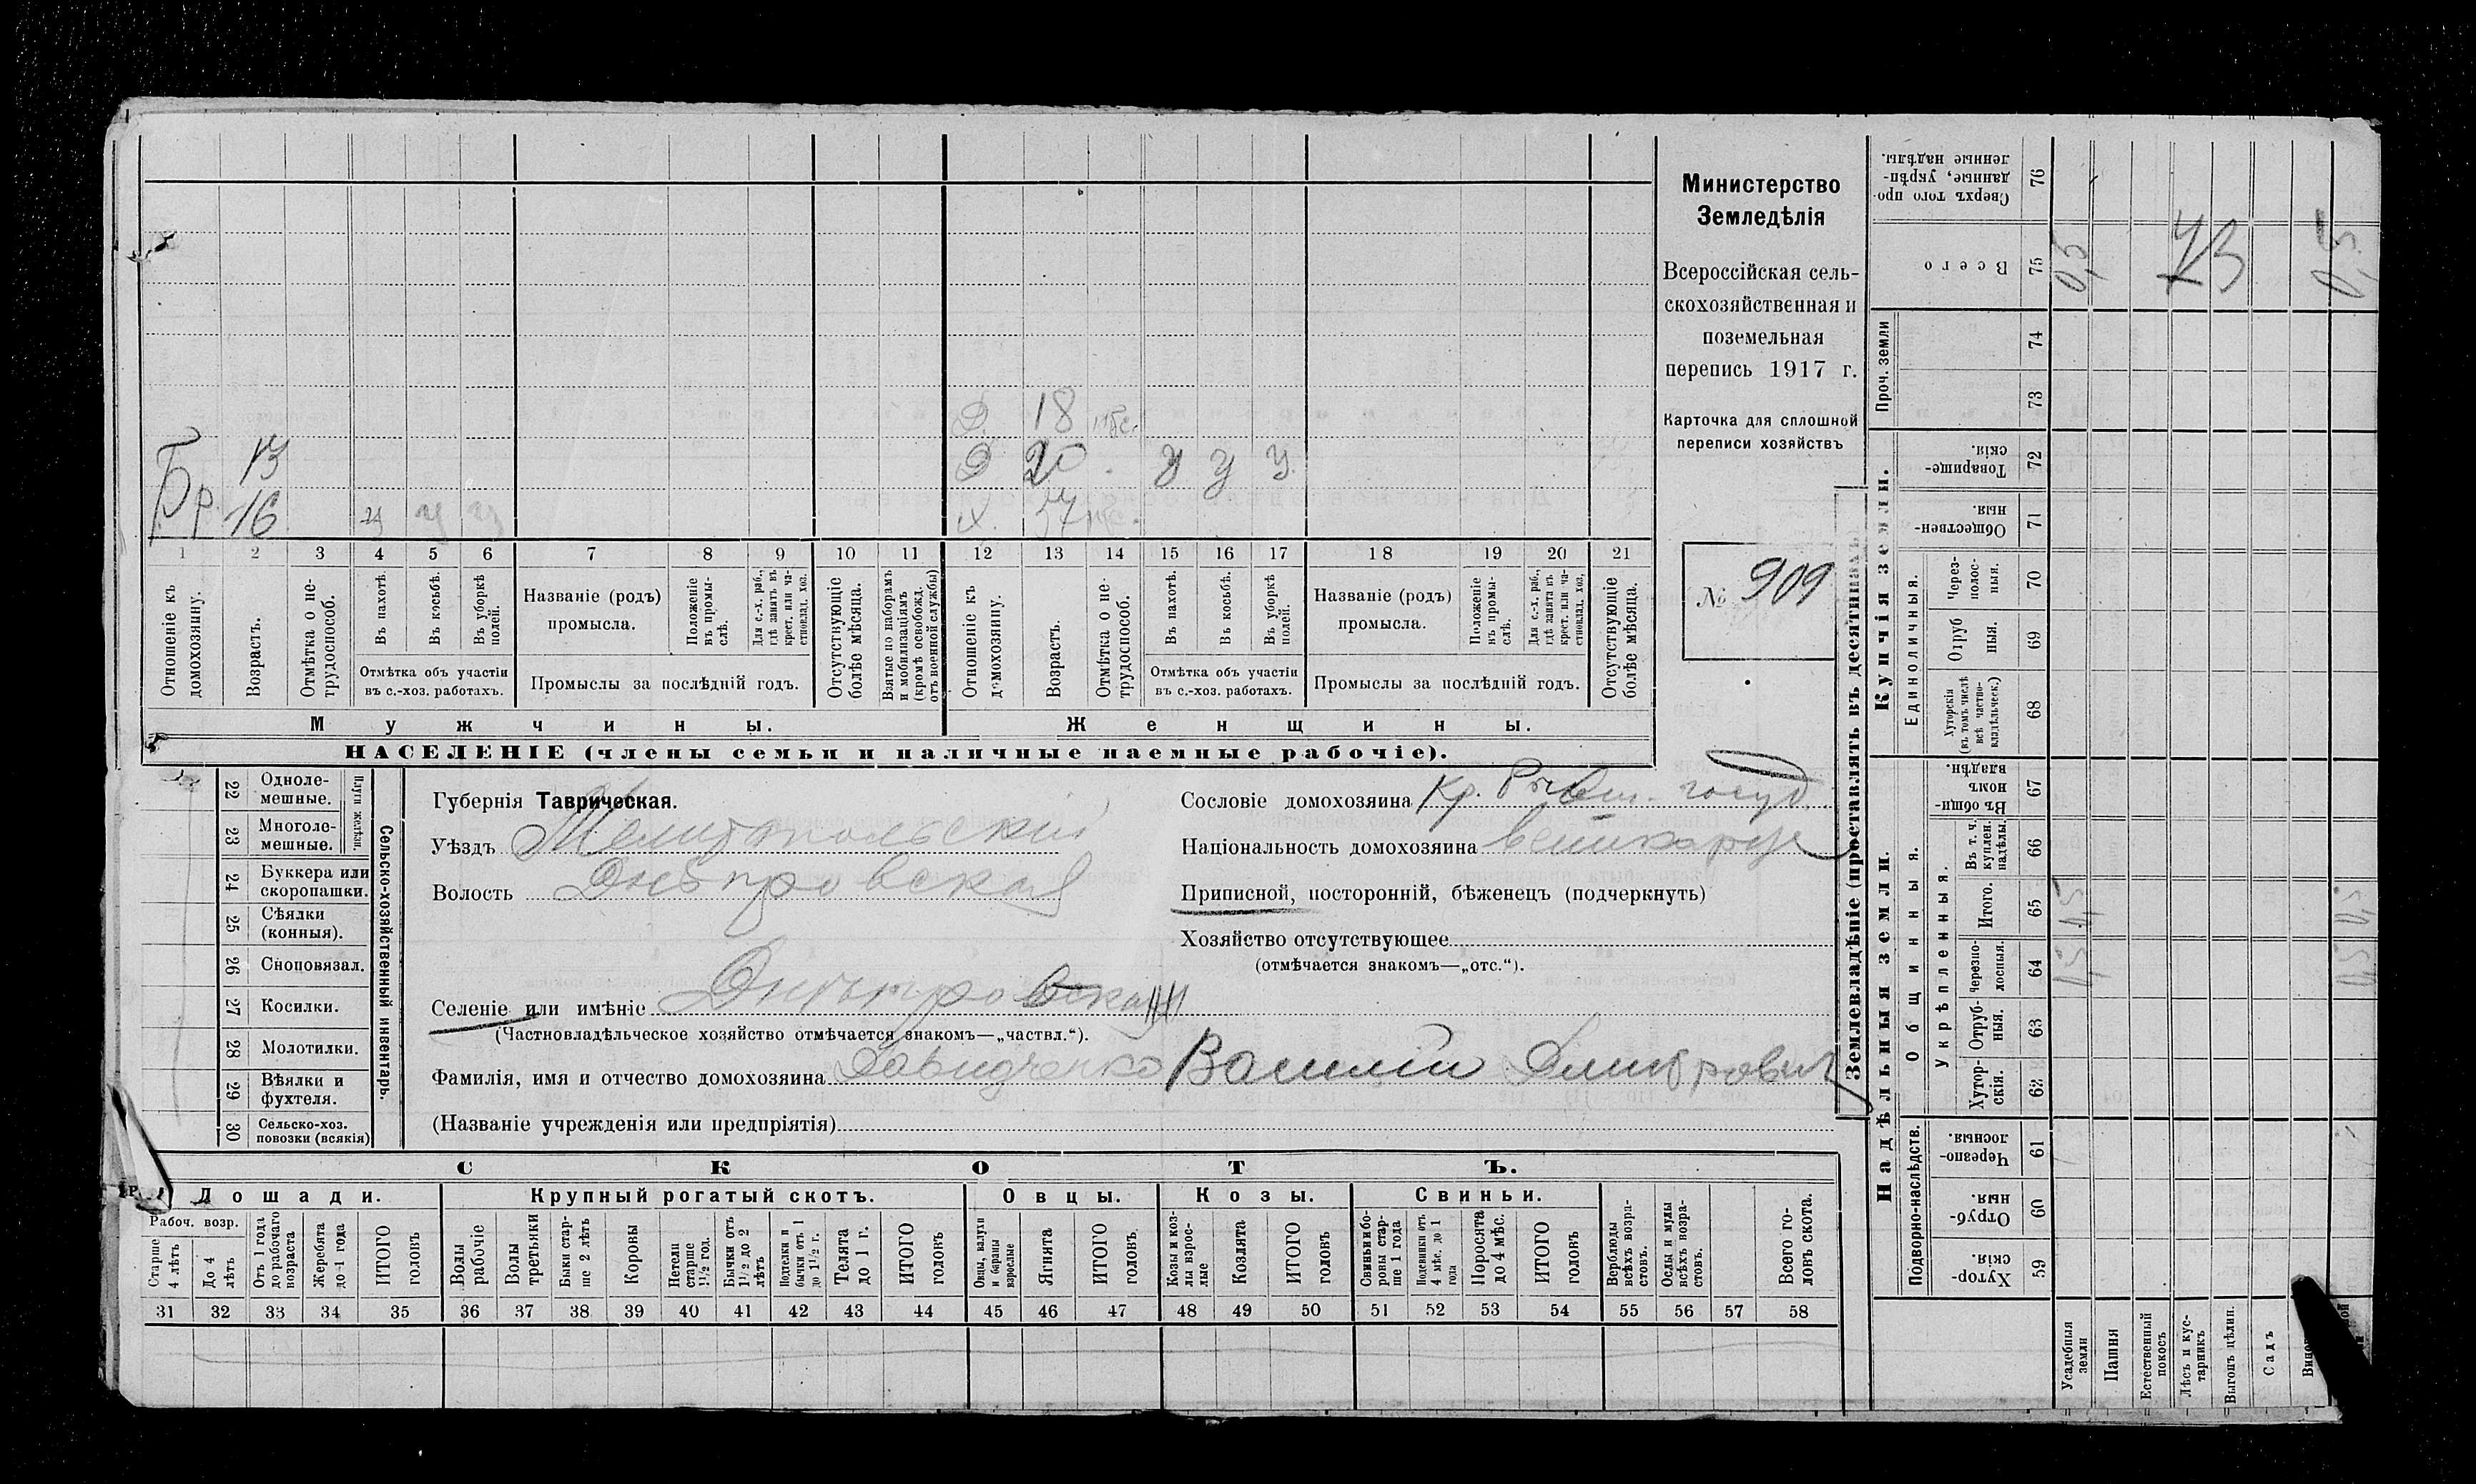 Министерство
Земледѣлія
Всероссійская сель-
скохозяйственная и
поземельная
перепись 1917 г.
Карточка для сплошной
переписи хозяйствъ
№ 909
Д. 18
Бр. 13
Д 20 У У У
16
1 2 3 4 5 6 7 8 9 10 11 12 13 14 15 16 17 18 19 20 21
Отношеніе къ домохозяину.
Возрастъ.
Отмѣтка о не-трудоспособ.
Въ пахотѣ.
Въ косьбѣ.
Въ уборкѣ полей.
Отмѣтка объ участіи
въ с.-хоз. работахъ.
Названіе (родъ)
промысла.
Положеніе въ промы-слѣ.
Для с.-х. раб., гдѣ занятъ въ крест. или ча-стновлад. хоз.
Промыслы за послѣдній годъ.
Отсутствующіе болѣе мѣсяца.
Взятые по наборамъ и мобилизаціямъ (кромѣ освобожд. отъ военной службы)
Отношеніе къ домохозяину.
Возрастъ.
Отмѣтка о не-трудоспособ.
Въ пахотѣ.
Въ косьбѣ.
Въ уборкѣ полей.
Отмѣтка объ участіи
въ с.-хоз. работахъ.
Названіе (родъ)
промысла.
Положеніе въ промы-слѣ.
Для с.-х. раб., гдѣ занята въ крест. или ча-стновлад. хоз.
Промыслы за послѣдній годъ.
Отсутствующіе болѣе мѣсяца.
Мужчины.
Женщины.
НАСЕЛЕНІЕ (члены семьи и наличные наемные рабочіе).
22 Одноле-мешные.
23 Многоле-мешные.
Плуги желѣзн.
24 Буккера или скоропашки.
25 Сѣялки (конныя).
26 Сноповязал.
27 Косилки.
28 Молотилки.
29 Вѣялки и фухтеля.
30 Сельско-хоз. повозки (всякія)
Сельско-хозяйственный инвентарь.
Губернія Таврическая.
Уѣздъ Мелитопольскій
Волость Днѣпровская
Селеніе или имѣніе Днѣпровка
(Частновладѣльческое хозяйство отмѣчается знакомъ—„частвл.“).
Фамилія, имя и отчество домохозяина Давидченко Василій Дмитрович
(Названіе учрежденія или предпріятія)
Сословіе домохозяина Кр.
Національность домохозяина
Приписной, посторонній, бѣженецъ (подчеркнуть)
Хозяйство отсутствующее
(отмѣчается знакомъ—„отс.“).
СКОТЪ.
Лошади.
Рабоч. возр.
Старше 4 лѣтъ
До 4 лѣтъ
Отъ 1 года до рабочаго возраста
Жеребята до 1 года
ИТОГО головъ
Крупный рогатый скотъ.
Волы рабочіе
Волы третьяки
Быки стар-ше 2 лѣтъ
Коровы
Нетели старше 1½ год.
Бычки отъ 1½ до 2 лѣтъ
Подтелки и бычки отъ 1 до 1½ г.
Телята до 1 г.
ИТОГО головъ
Овцы.
Овцы, валухи и бараны взрослые
Ягнята
ИТОГО головъ
Козы.
Козы и коз-лы взрос-лые
Козлята
ИТОГО головъ
Свиньи.
Свиньи бо-ровы стар-ше 1 года
Подсвинки отъ 4 мѣс. до 1 года
Поросята до 4 мѣс.
ИТОГО головъ
Верблюды всѣхъ возра-стовъ.
Ослы и мулы всѣхъ возра-стовъ.
Всего го-ловъ скота.
31 32 33 34 35 36 37 38 39 40 41 42 43 44 45 46 47 48 49 50 51 52 53 54 55 56 57 58
Землевладѣніе (проставлять въ десятинахъ
Надѣльныя земли.
Подворно-наслѣдств.
Хутор-скія. 59
Отруб-ныя. 60
Черезпо-лосныя. 61
Общинныя.
Укрѣпленныя.
Хутор-скія. 62
Отруб-ныя. 63
Черезпо-лосныя. 64 0,5
Итого. 65 0,5
Въ т. ч. куплен. надѣлы. 66
Въ общин-номъ владѣн. 67
Купчія земли.
Единоличныя.
Хуторскія (въ томъ числѣ всѣ частно-владѣльческ.) 68
Отрубныя. 69
Через-полос-ныя. 70
Обществен-ныя. 71
Товарище-скія. 72
Проч. земли
73
74
Всего 75 0,5 0,5
Сверхъ того про-данные, укрѣп-ленные надѣлы. 76
Усадебныя земли
Пашня
Естественный покосъ
Лѣсъ и кус-тарникъ
Выгонъ цѣлин.
Садъ